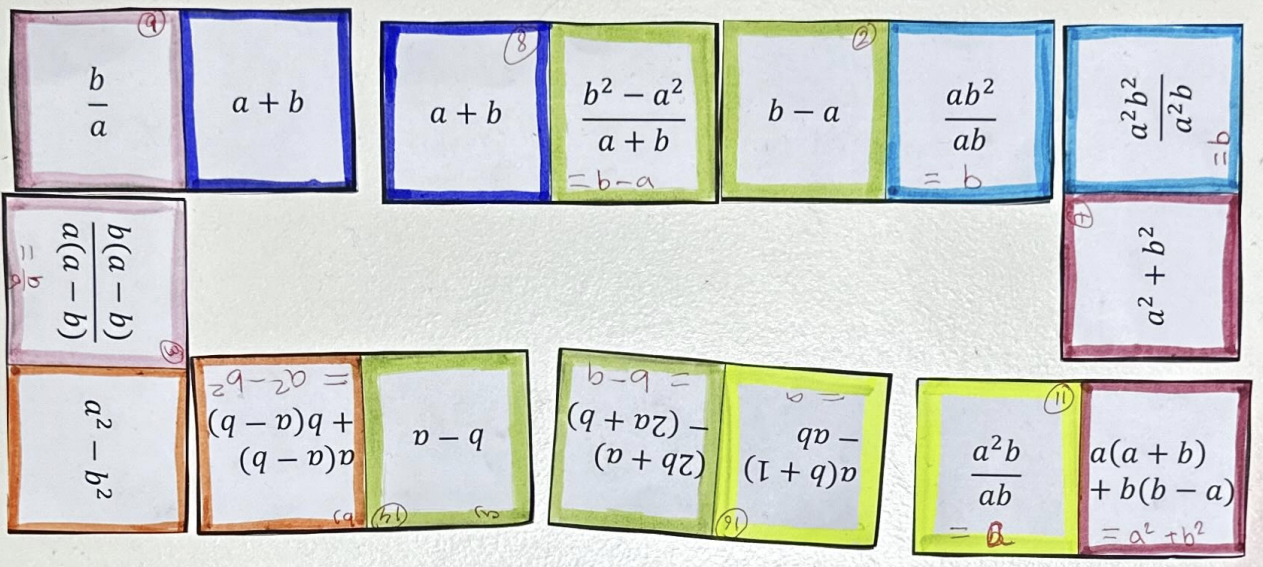 9
b/a
a + b
8
a + b
(b² − a²)/(a + b)
= b − a
2
b − a
ab²/ab
= b
a²b²/a²b
= b
7
a² + b²
b(a − b)/a(a − b)
= b/a
a² − b²
b)
a(a − b)
+ b(a − b)
= a² − b²
14
b − a
(2b + a)
− (2a + b)
= b − a
16
a(b + 1)
− ab
= a
11
a²b/ab
= a
a(a + b)
+ b(b − a)
= a² + b²